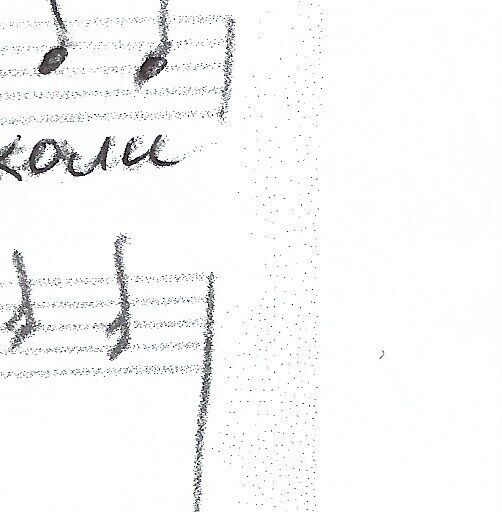 коли